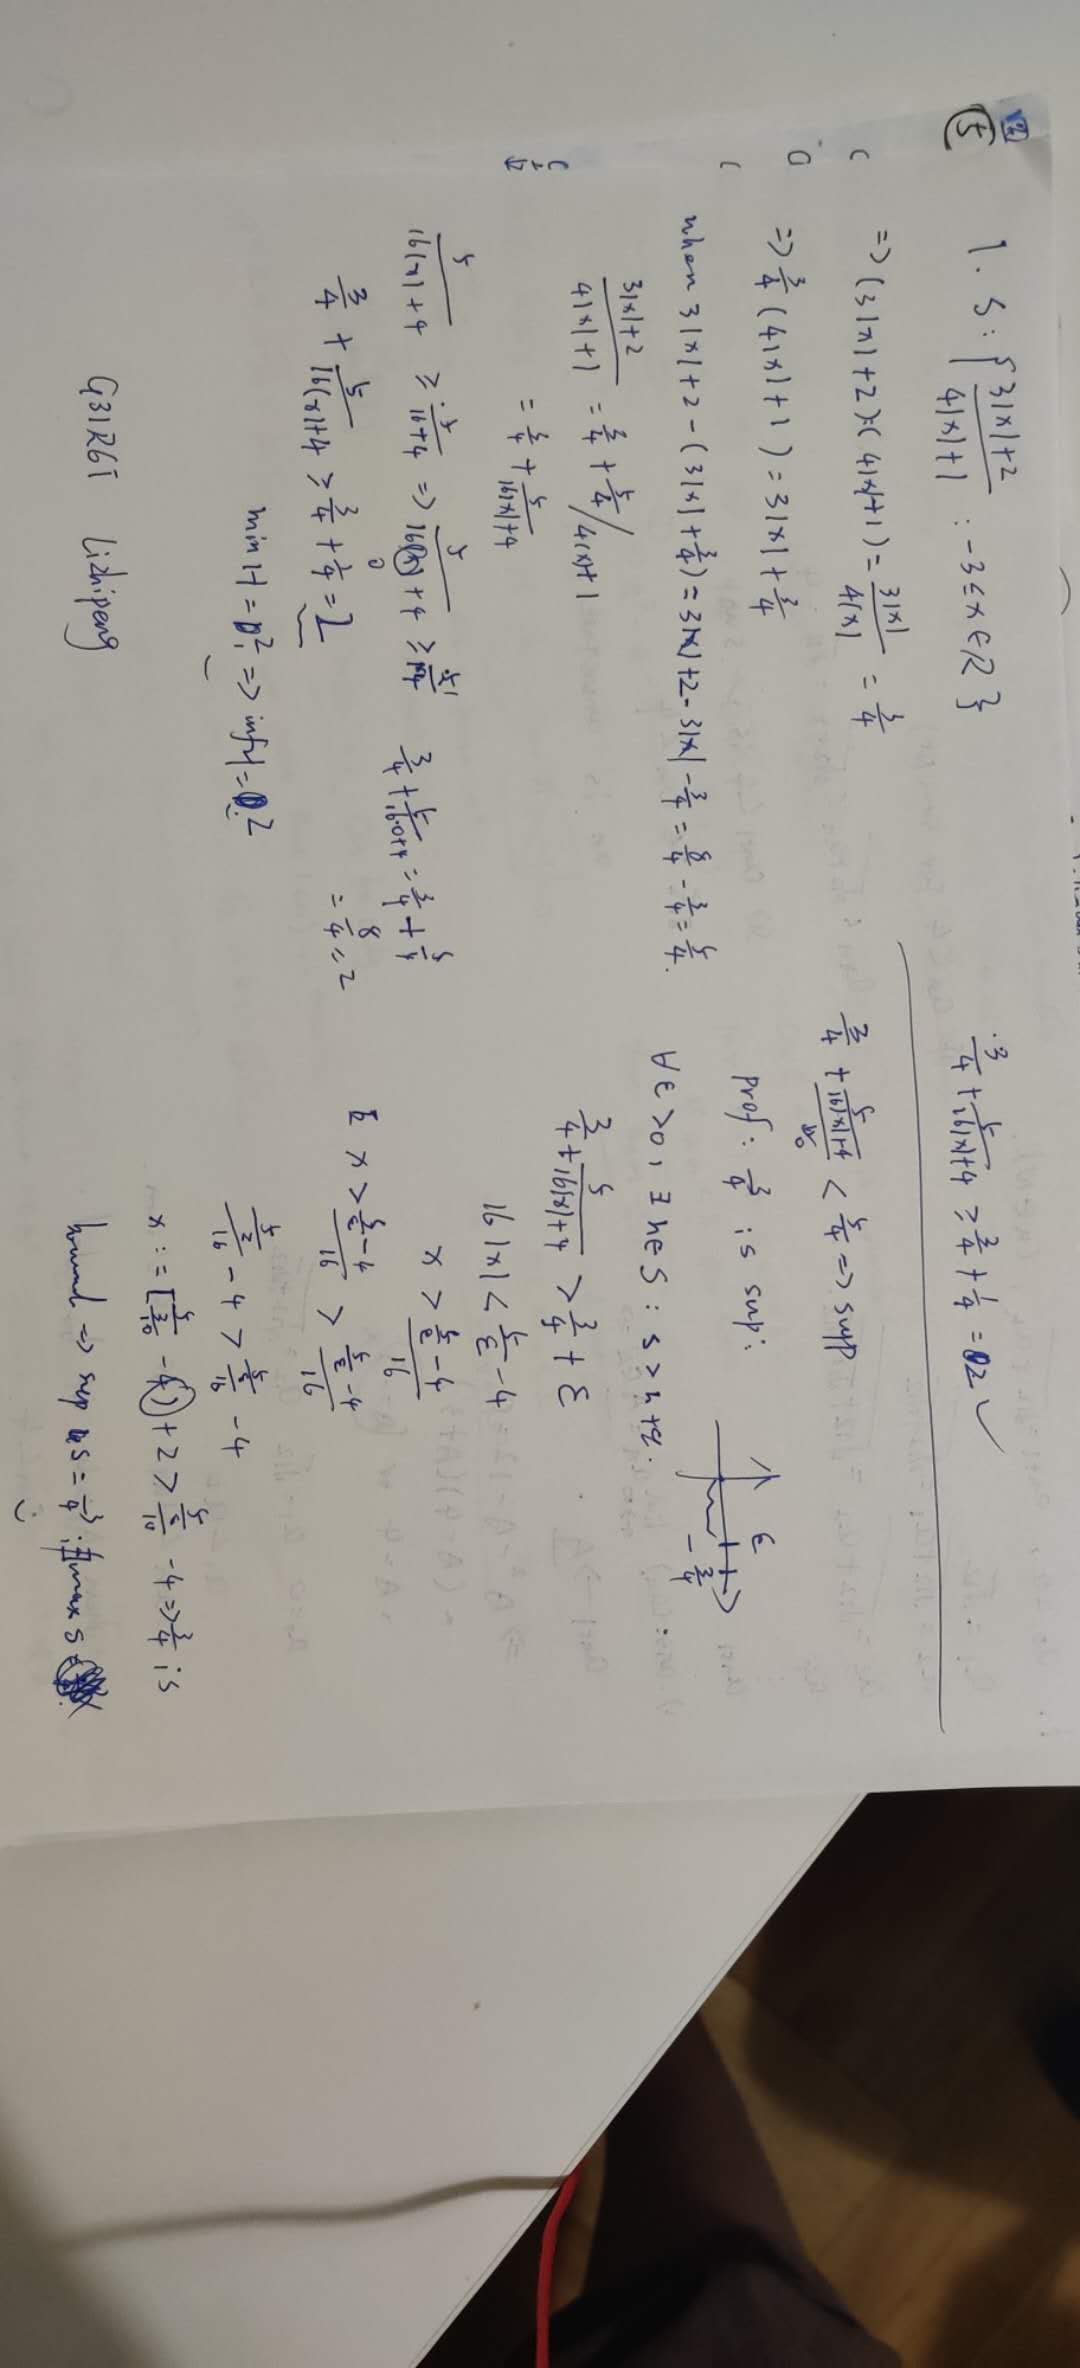 V2
5
1. S: { 3|x|+2 / 4|x|+1 : -3 ≤ x ∈ R }
=> (3|x|+2):(4|x|+1) = 3|x| / 4|x| = 3/4
=> 3/4 (4|x|+1) = 3|x| + 3/4
when 3|x|+2 - (3|x|+3/4) = 3|x|+2-3|x|-3/4 = 8/4 - 3/4 = 5/4.
3|x|+2 / 4|x|+1 = 3/4 + 5/4 / 4|x|+1
= 3/4 + 5 / 16|x|+4
5 / 16|x|+4 ≥ 5 / 16+4 =>
3/4 + 5 / 16·0+4 = 3/4 + 5/4
= 8/4 = 2
3/4 + 5 / 16|x|+4 ≥ 3/4 + 5/4 = 2
min H = 2 => inf H = 2
G31261 Lizhipeng
3/4 + 5 / 16|x|+4 ≥ 3/4 + 1/4 = 2 ✓
3/4 + 5 / 16|x|+4 < 5/4 => sup
prof: 3/4 is sup:
ε
-3/4
∀ε >0, ∃ h∈S : s > h+ε.
3/4 + 5 / 16|x|+4 > 3/4 + ε
16|x| < 5/ε - 4
x > 5/ε - 4 / 16
x > 5/ε - 4 / 16 > 5/ε - 4 / 16
-4 > 5/ε / 16 - 4
+2 > 5/ε / 10 - 4 => 3/4 is
=> sup S = 3/4 ; ∄ max S